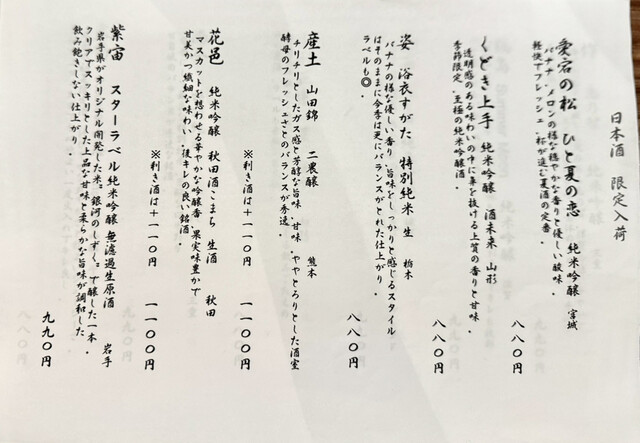 日本酒 限定入荷
愛宕の松 ひと夏の恋 純米吟醸 宮城
バナナ、メロンの様な穏やかな香りと優しい酸味。
軽快でフレッシュ、杯が進む夏酒の定番。
八八〇円
くどき上手 純米吟醸 酒未来 山形
透明感のある味わいの中に鼻を抜ける上質の香りと甘味。
季節限定、至極の純米吟醸酒。
八八〇円
姿 浴衣すがた 特別純米 生 栃木
バナナの様な優しい香り、旨味をしっかりと感じるスタイル
はそのままに今季は更にバランスがとれた仕上がり。
ラベルも◎。
八八〇円
産土 山田錦 二農醸 熊本
チリチリとしたガス感と芳醇な旨味・甘味、ややとろりとした酒室
酵母のフレッシュさとのバランスが秀逸。
※利き酒は＋一一〇円 一一〇〇円
花邑 純米吟醸 秋田酒こまち 生酒 秋田
マスカットを想わせる華やかな吟醸香、果実味豊かで
甘美かつ繊細な味わい、後キレの良い銘酒。
※利き酒は＋一一〇円 一一〇〇円
紫宙 スターラベル 純米吟醸 無濾過生原酒 岩手
岩手県がオリジナル開発した米、銀河のしずく。で醸した一本。
クリアでスッキリとした上品な甘味と柔らかな旨味が調和した
飲み飽きしない仕上がり。
九九〇円